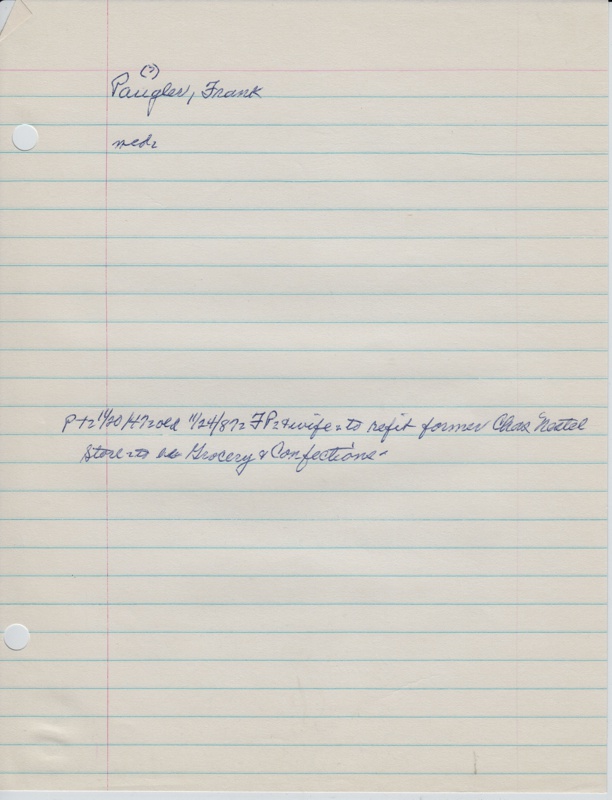 (?)
Paugler, Frank
med.
11/20/47 old 11/24/87 = FP & wife = to refit former Chas Nestel
Store = to Grocery & Confections -